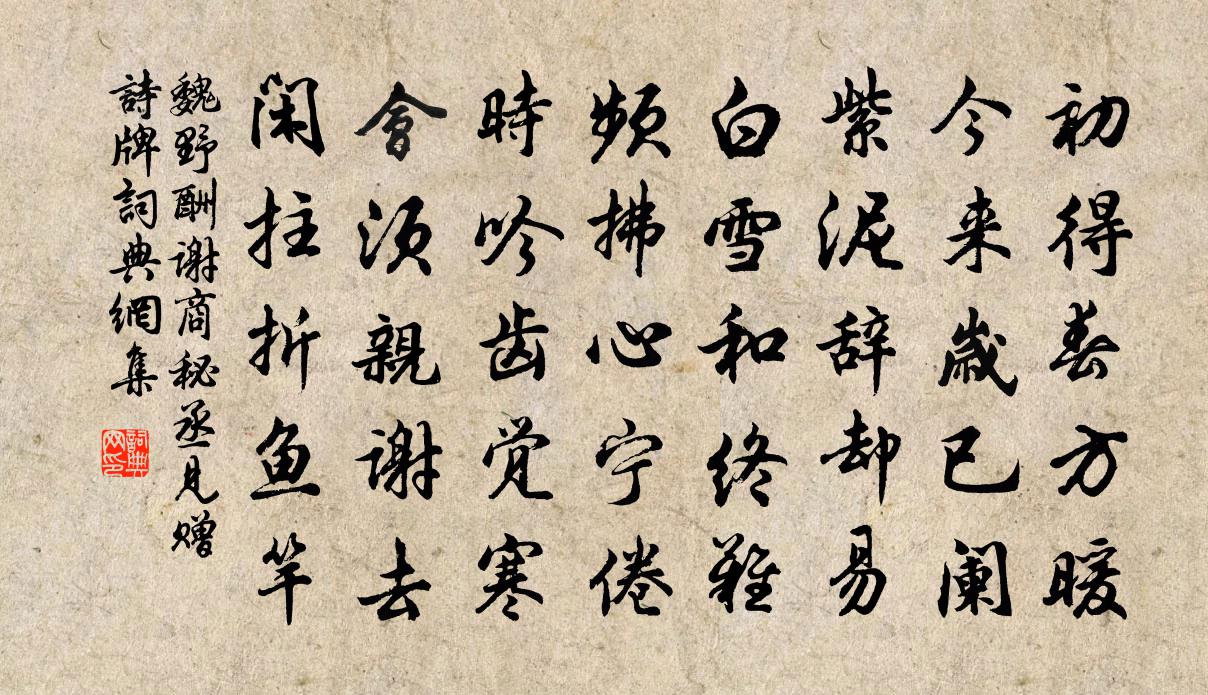 初得春方暖
今来歲已阑
紫泥辞却易
白雪和终難
频拂心宁倦
時吟齿觉寒
會须親谢去
闲拄折魚竿
魏野酬谢商秘丞見赠
詩牌詞典網集
詞典网印